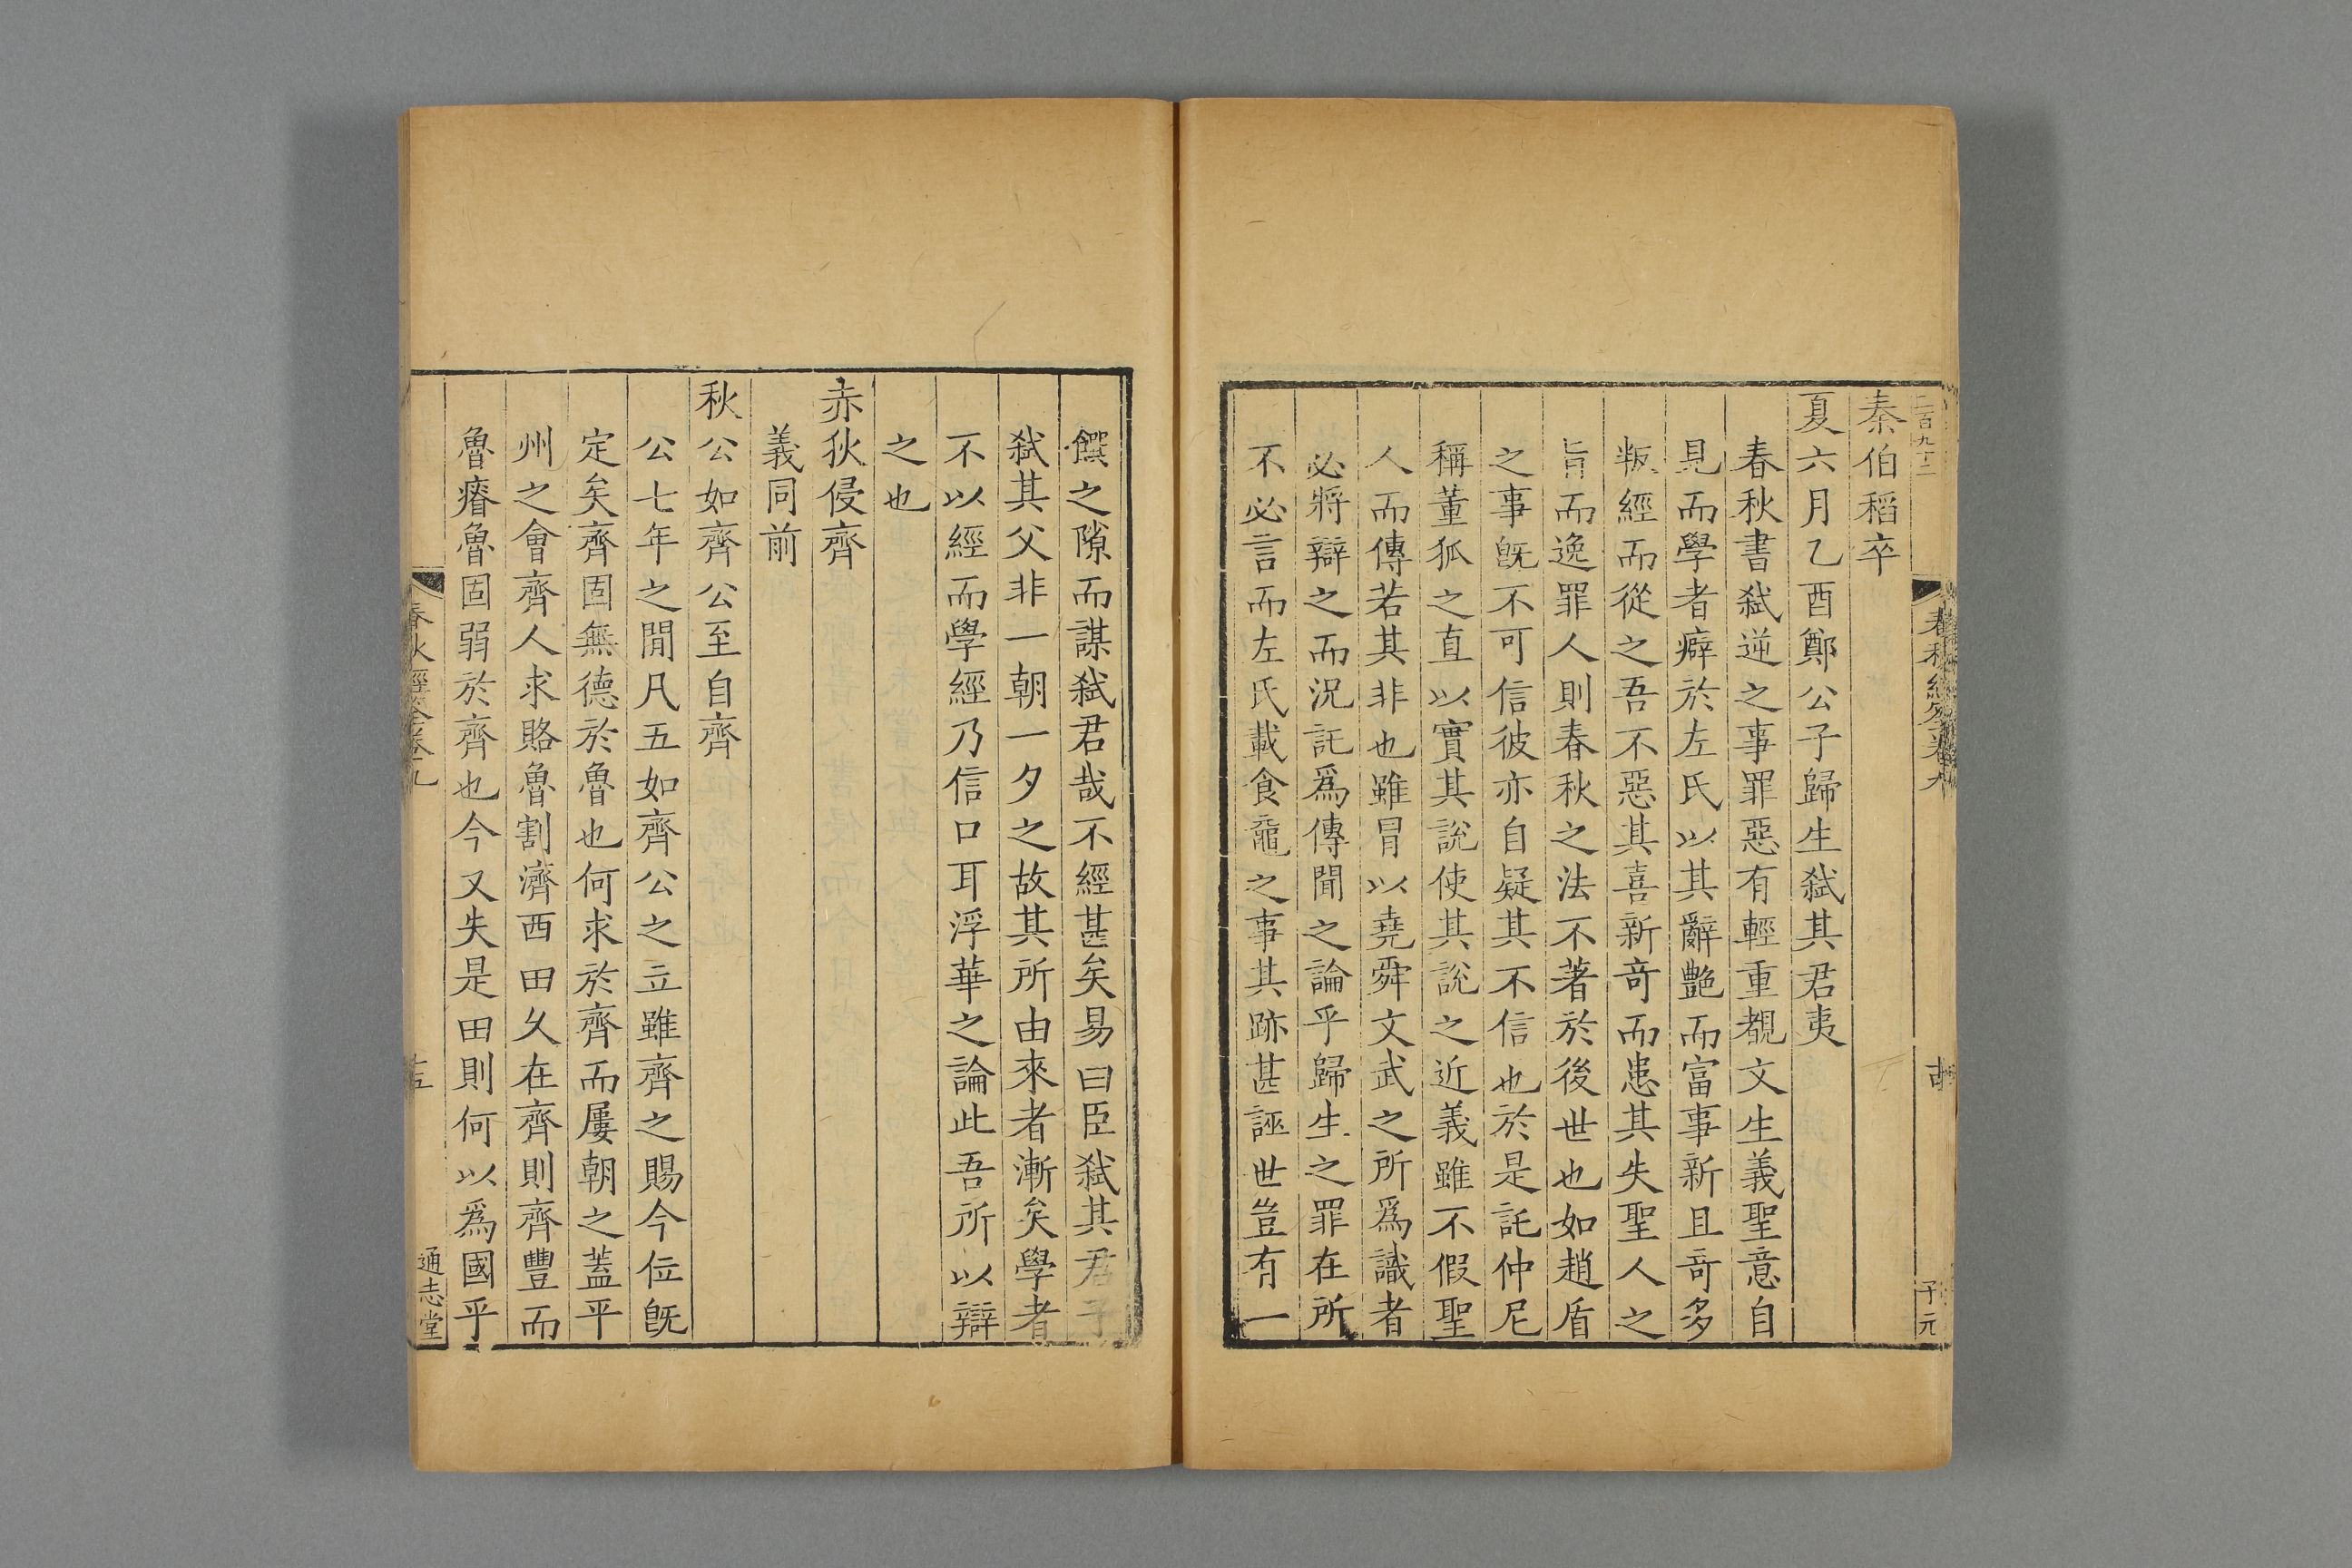 秦伯稻卒
夏六月乙酉鄭公子歸生弑其君夷
春秋書弑逆之事罪惡有輕重覩文生義聖意自
見而學者癖於左氏以其辭艷而富事新且竒多
叛經而從之吾不惡其喜新竒而患其失聖人之
旨而逸罪人則春秋之法不著於後世也如趙盾
之事旣不可信彼亦自疑其不信也於是託仲尼
稱董狐之直以實其說使其說之近義雖不假聖
人而傳若其非也雖冒以堯舜文武之所爲識者
必將辯之而況託爲傳聞之論乎歸生之罪在所
不必言而左氏載食黿之事其跡甚誣世豈有一
饌之隙而謀弑君哉不經甚矣易曰臣弑其君子
弑其父非一朝一夕之故其所由來者漸矣學者
不以經而學經乃信口耳浮華之論此吾所以辯
之也
赤狄侵齊
義同前
秋公如齊公至自齊
公七年之閒凡五如齊公之立雖齊之賜今位旣
定矣齊固無德於魯也何求於齊而屢朝之蓋平
州之會齊人求賂魯割濟西田久在齊則齊豐而
魯瘠魯固弱於齊也今又失是田則何以爲國乎
春秋經筌卷九
十五
通志堂